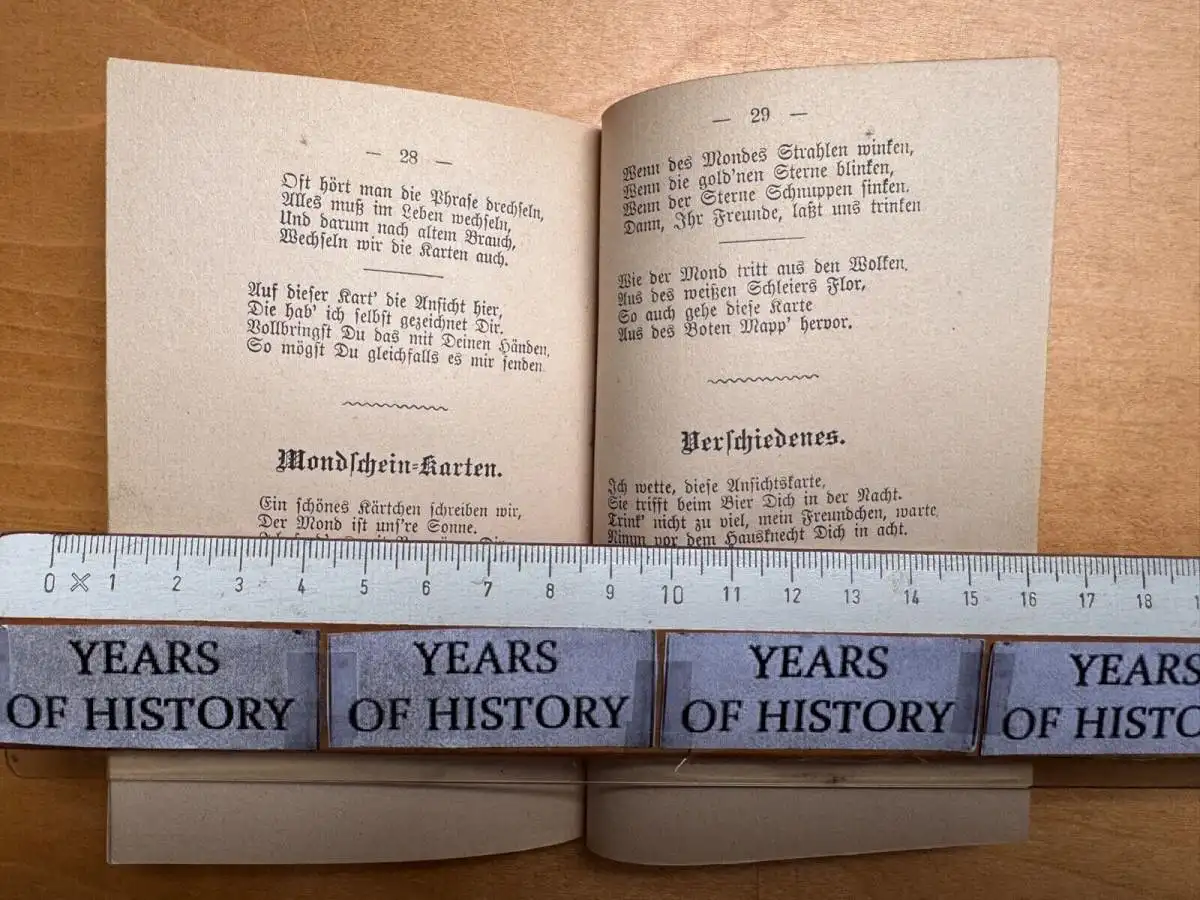 — 28 —
Oft hört man die Phrase drechseln,
Alles muß im Leben wechseln,
Und darum nach altem Brauch,
Wechseln wir die Karten auch.
Auf dieser Kart' die Ansicht hier,
Die hab' ich selbst gezeichnet Dir.
Vollbringst Du das mit Deinen Händen,
So mögst Du gleichfalls es mir senden.
Mondschein-Karten.
Ein schönes Kärtchen schreiben wir,
Der Mond ist uns're Sonne.
— 29 —
Wenn des Mondes Strahlen winken,
Wenn die gold'nen Sterne blinken,
Wenn der Sterne Schnuppen sinken.
Dann, Ihr Freunde, laßt uns trinken
Wie der Mond tritt aus den Wolken,
Aus des weißen Schleiers Flor,
So auch gehe diese Karte
Aus des Boten Mapp' hervor.
Verschiedenes.
Ich wette, diese Ansichtskarte,
Sie trifft beim Bier Dich in der Nacht.
Trink' nicht zu viel, mein Freundchen, warte
Nimm vor dem Hausknecht Dich in acht.
0 1 2 3 4 5 6 7 8 9 10 11 12 13 14 15 16 17 18
YEARS
OF HISTORY
YEARS
OF HISTORY
YEARS
OF HISTORY
YEARS
OF HISTO